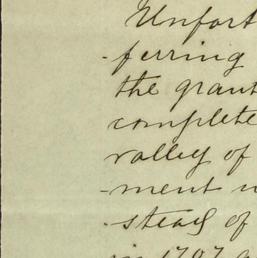 Unfort
-ferring
the grant
complete
valley of
-ment
-stead of
in 1797